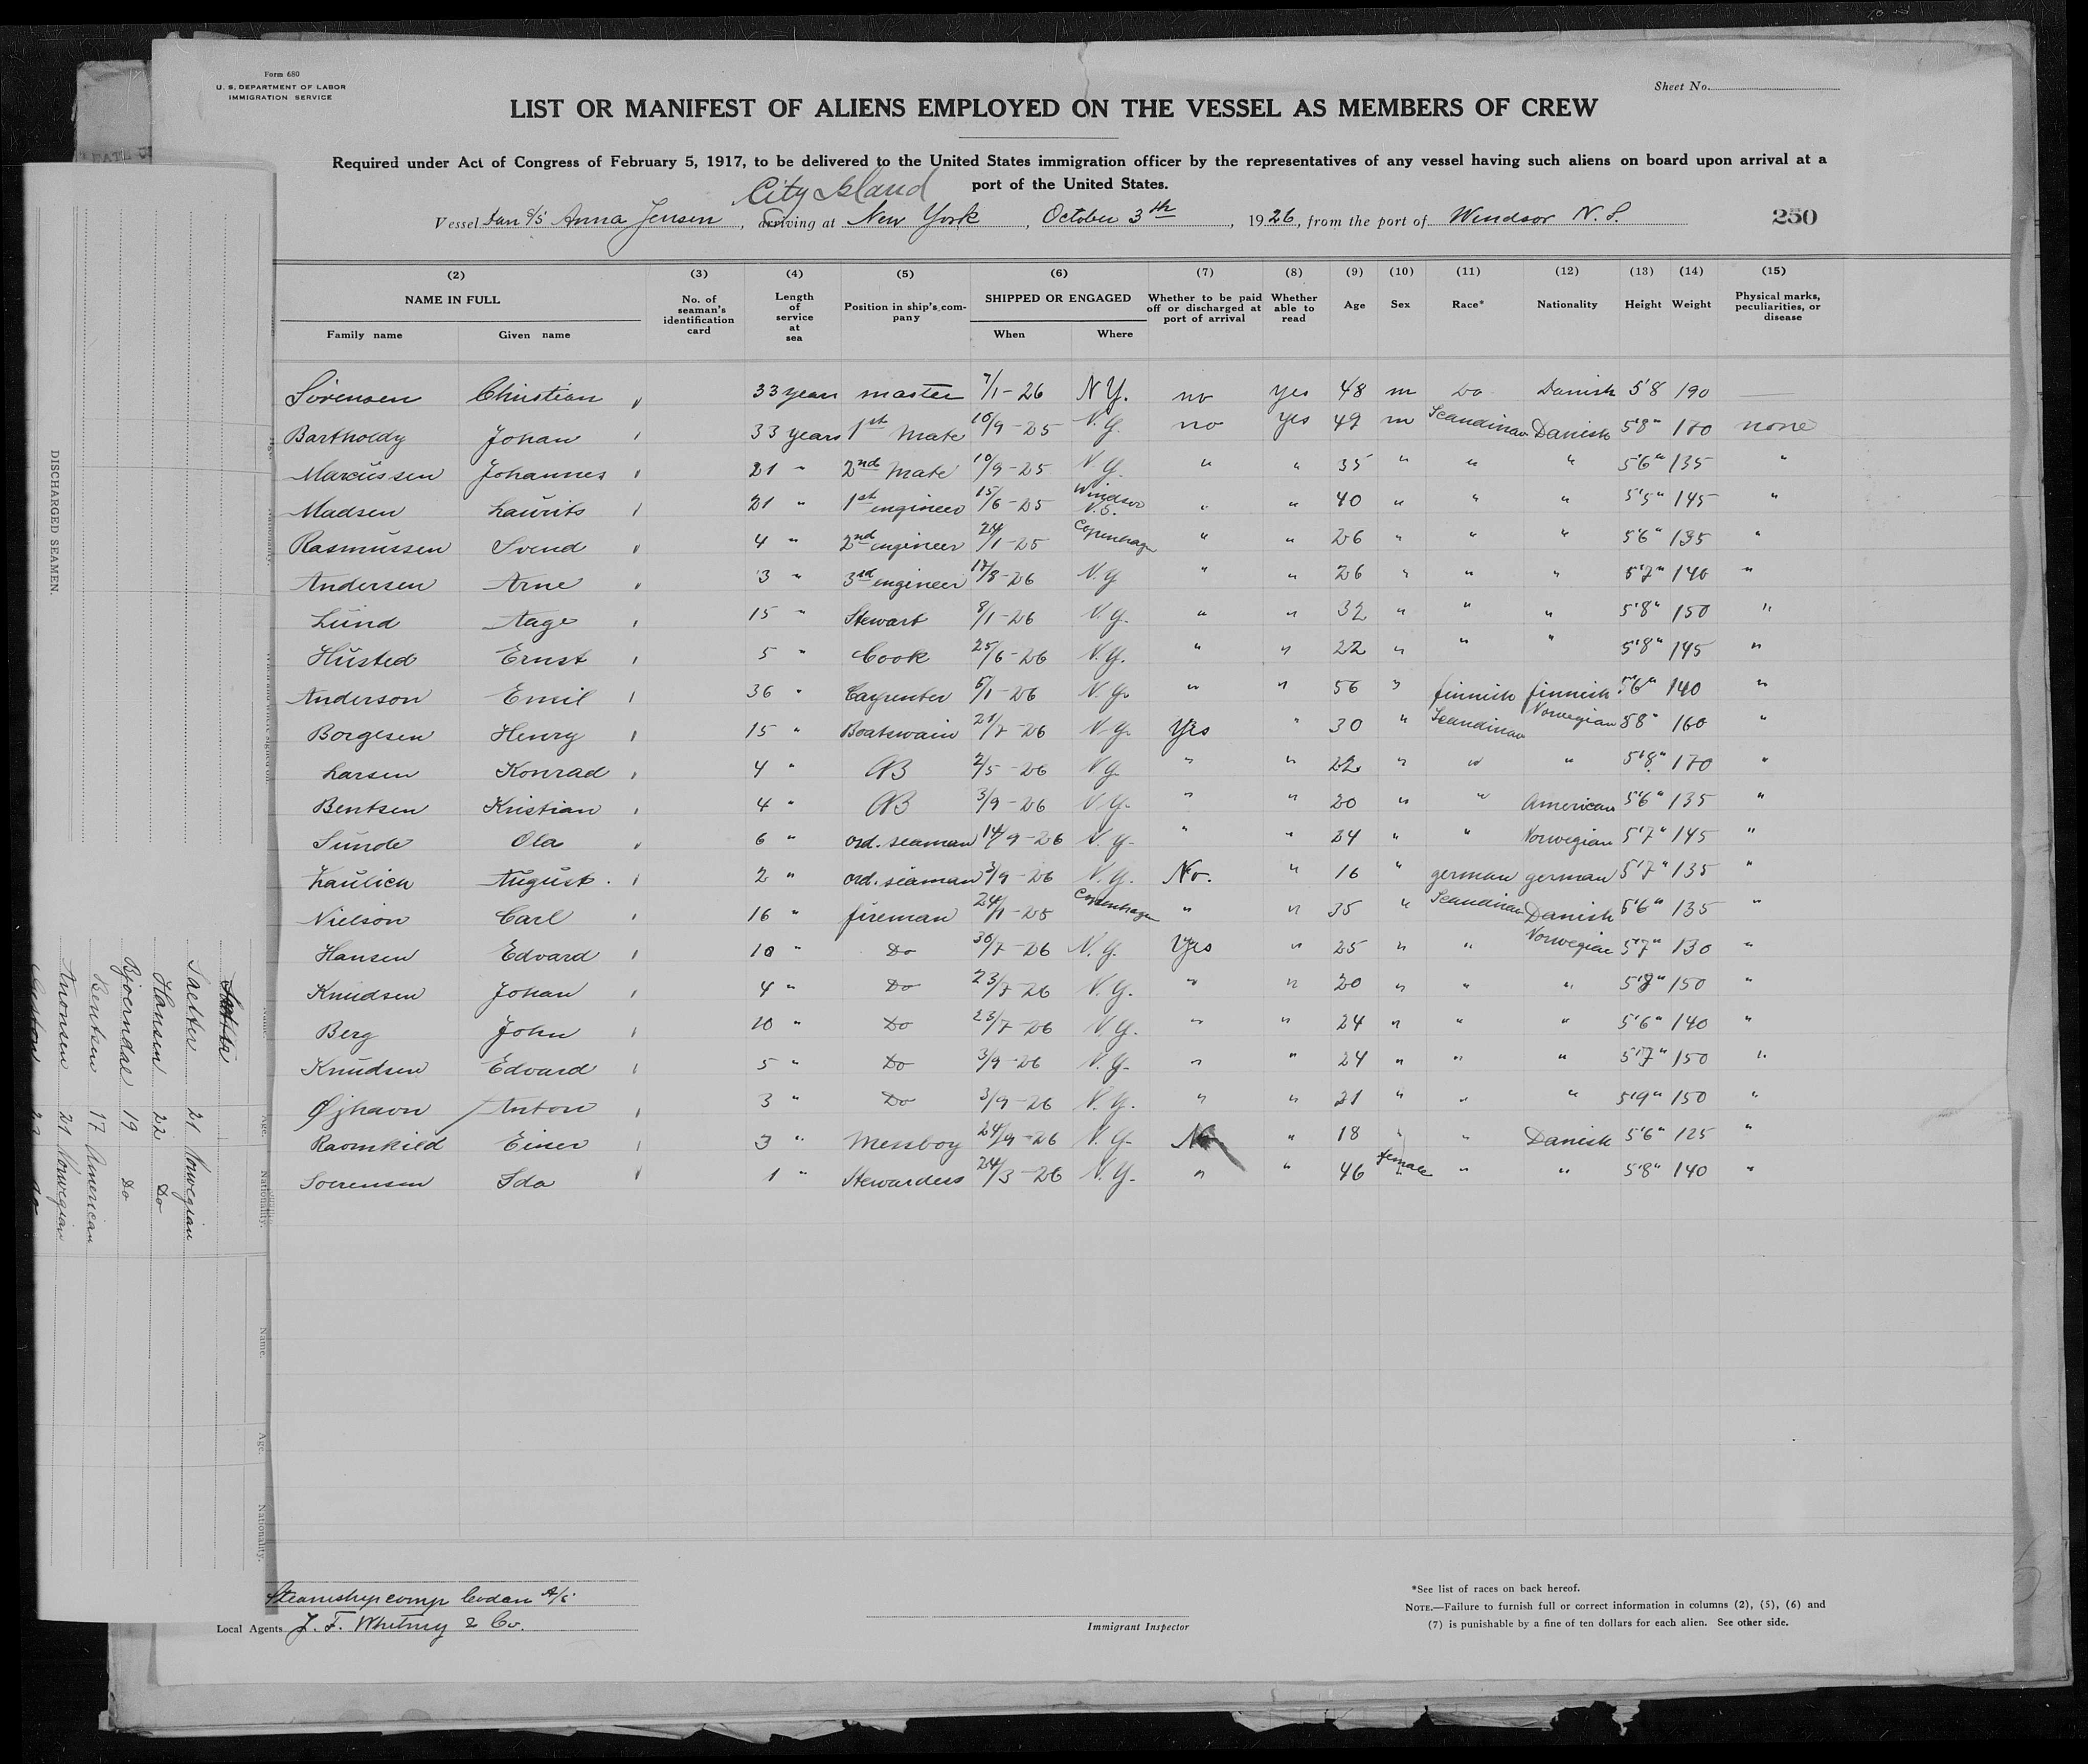 Form 680
U. S. DEPARTMENT OF LABOR
IMMIGRATION SERVICE
Sheet No.
LIST OR MANIFEST OF ALIENS EMPLOYED ON THE VESSEL AS MEMBERS OF CREW
Required under Act of Congress of February 5, 1917, to be delivered to the United States immigration officer by the representatives of any vessel having such aliens on board upon arrival at a
port of the United States.
City Island
Vessel Dan S/S Anna Jensen, arriving at New York, October 3th, 1926, from the port of Windsor N.S. 250
(2) (3) (4) (5) (6) (7) (8) (9) (10) (11) (12) (13) (14) (15)
NAME IN FULL No. of seaman's identification card Length of service at sea Position in ship's company SHIPPED OR ENGAGED Whether to be paid off or discharged at port of arrival Whether able to read Age Sex Race* Nationality Height Weight Physical marks, peculiarities, or disease
Family name Given name When Where
Sörensen Christian 33 years master 7/1-26 N.Y. no yes 48 m Do Danish 5'8 190 —
Bartholdy Johan 33 years 1st Mate 10/9-25 N.Y. no yes 49 m Scandinav Danish 5'8" 170 none
Marcussen Johannes 21 " 2nd Mate 10/9-25 N.Y. " " 35 " " " 5'6" 135 "
Madsen Laurits 21 " 1st engineer 15/6-25 Windsor N.S. " " 40 " " " 5'5" 145 "
Rasmussen Svend 4 " 2nd engineer 24/1-25 Copenhagen " " 26 " " " 5'6" 135 "
Andersen Arne 3 " 3rd engineer 17/8-26 N.Y. " " 26 " " " 5'7" 140 "
Lund Aage 15 " Stewart 8/1-26 N.Y. " " 32 " " " 5'8" 150 "
Husted Ernst 5 " Cook 25/6-26 N.Y. " " 22 " " " 5'8" 145 "
Anderson Emil 36 " Carpenter 5/1-26 N.Y. " " 56 " finnish finnish 5'6" 140 "
Borgesen Henry 15 " Boatswain 21/7-26 N.Y. Yes " 30 " Scandinav Norwegian 5'8" 160 "
Larsen Konrad 4 " AB 2/5-26 N.Y. " " 22 " " " 5'8" 170 "
Bentsen Kristian 4 " AB 3/9-26 N.Y. " " 20 " " American 5'6" 135 "
Sunde Ola 6 " ord. seaman 14/9-26 N.Y. " " 24 " " Norwegian 5'7" 145 "
Laulich August 2 " ord. seaman 3/9-26 N.Y. No. " 16 " german german 5'7" 135 "
Nielson Carl 16 " fireman 24/1-25 Copenhagen " " 35 " Scandinav Danish 5'6" 135 "
Hansen Edvard 10 " Do 30/7-26 N.Y. Yes " 25 " " Norwegian 5'7" 130 "
Knudsen Johan 4 " Do 23/7-26 N.Y. " " 20 " " " 150 "
Berg John 10 " Do 23/7-26 N.Y. " " 24 " " " 5'6" 140 "
Knudsen Edvard 5 " Do 3/9-26 N.Y. " " 24 " " " 5'7" 150 "
Øjhavn Anton 3 " Do 3/9-26 N.Y. " " 21 " " " 5'9" 150 "
Raomkild Einer 3 " Messboy 24/9-26 N.Y. No " 18 " " Danish 5'6" 125 "
Soerensen Ida 1 " Stewardess 24/3-26 N.Y. " " 46 female " " 5'8" 140 "
DISCHARGED SEAMEN.
Name. Age. Nationality.
Saelter 21 Norwegian
Hansen 22 Do
Bjoerndal 19 Do
Bentsen 17 American
Anonsen 21 Norwegian
Name. Age. Nationality.
Steamshipcomp Codan A/S
Local Agents J. F. Whitney & Co.
Immigrant Inspector
*See list of races on back hereof.
NOTE.—Failure to furnish full or correct information in columns (2), (5), (6) and
(7) is punishable by a fine of ten dollars for each alien. See other side.